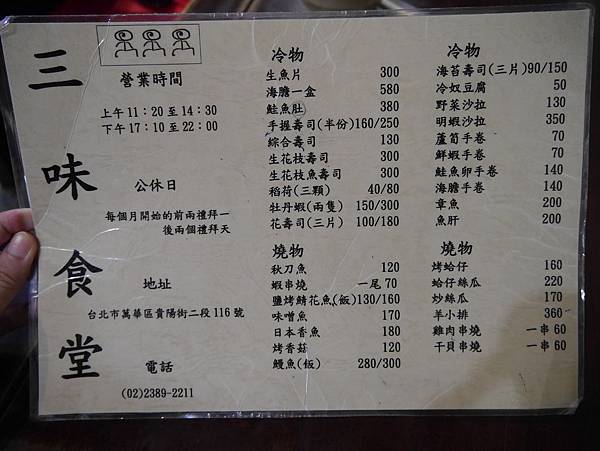 三味食堂
營業時間
上午 11：20 至 14：30
下午 17：10 至 22：00
公休日
每個月開始的前兩禮拜一
後兩個禮拜天
地址
台北市萬華區貴陽街二段 116 號
電話
(02)2389-2211
冷物
生魚片 300
海膽一盒 580
鮭魚肚 380
手握壽司(半份)160/250
綜合壽司 130
生花枝壽司 300
生花枝魚壽司 300
稻荷(三顆) 40/80
牡丹蝦(兩隻) 150/300
花壽司(三片) 100/180
燒物
秋刀魚 120
蝦串燒 一尾 70
鹽烤鯖花魚(飯)130/160
味噌魚 170
日本香魚 180
烤香菇 120
鰻魚(飯) 280/300
冷物
海苔壽司(三片)90/150
冷奴豆腐 50
野菜沙拉 130
明蝦沙拉 350
蘆筍手卷 70
鮮蝦手卷 70
鮭魚卵手卷 140
海膽手卷 140
章魚 200
魚肝 200
燒物
烤蛤仔 160
蛤仔絲瓜 220
炒絲瓜 170
羊小排 360
雞肉串燒 一串 60
干貝串燒 一串 60